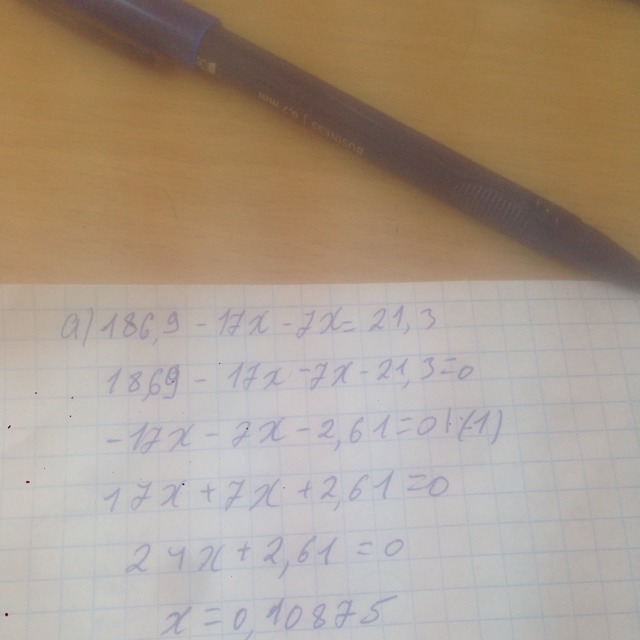 a) 186,9 - 17x - 7x = 21,3
18,69 - 17x - 7x - 21,3 = 0
- 17x - 7x - 2,61 = 0 |:(-1)
17x + 7x + 2,61 = 0
24x + 2,61 = 0
x = 0,10875